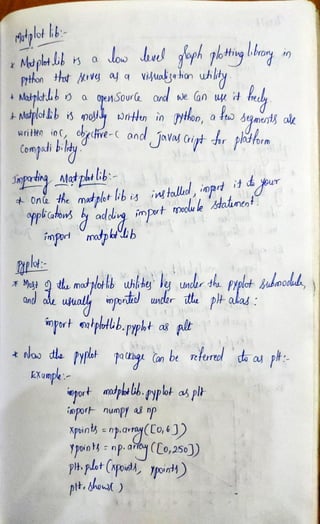 Matplot lib:-
* Matplot.lib is a low level graph plotting library in
python that serves as a visualization utility.
* Matplotlib is a openSource and we can use it freely
* Matplotlib is mostly written in python, a few segments are
written in c, objective-c and javascript for platform
Compatibility.
Importing Matplotlib:-
* once the matplot lib is installed, import it to your
applications by adding import module statement.
import matplotlib
Pyplot:-
* Most of the matplotlib utilities lies under the pyplot submodule,
and are usually imported under the plt alias:
import matplotlib.pyplot as plt
* Now the pyplot package can be referred to as plt:-
Example:-
import matplotlib.pyplot as plt
import numpy as np
xpoints = np.array([0,6])
ypoints = np.array([0,250])
plt.plot(xpoints, ypoints)
plt.show()